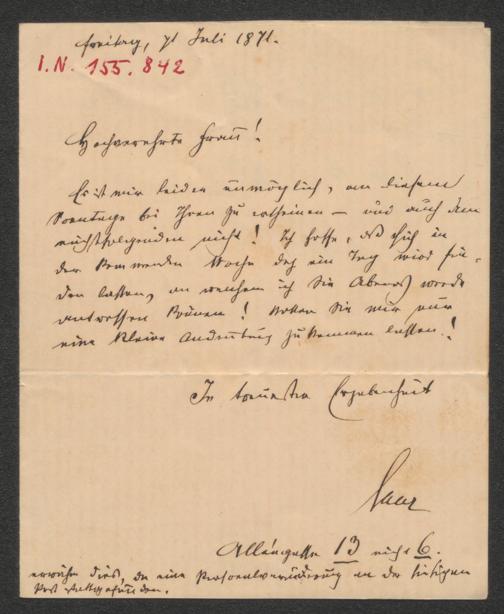 Freitag, 7t Juli 1871.
I.N. 155.842
Hochverehrte Frau!
Es ist mir leider unmöglich, an diesem
Sonntage bei Ihnen zu erscheinen – und auch dem
nächstfolgenden nicht! Ich hoffe, daß sich in
der kommenden Woche doch ein Tag wird fin-
den lassen, an welchem ich Sie Abends werde
antreffen können! Wollen Sie mir nur
eine kleine Andeutung zukommen lassen!
In treuester Ergebenheit
Saar
13 nicht 6.
erwähne dies, da eine Personalveränderung an der hiesigen
Post stattgefunden.